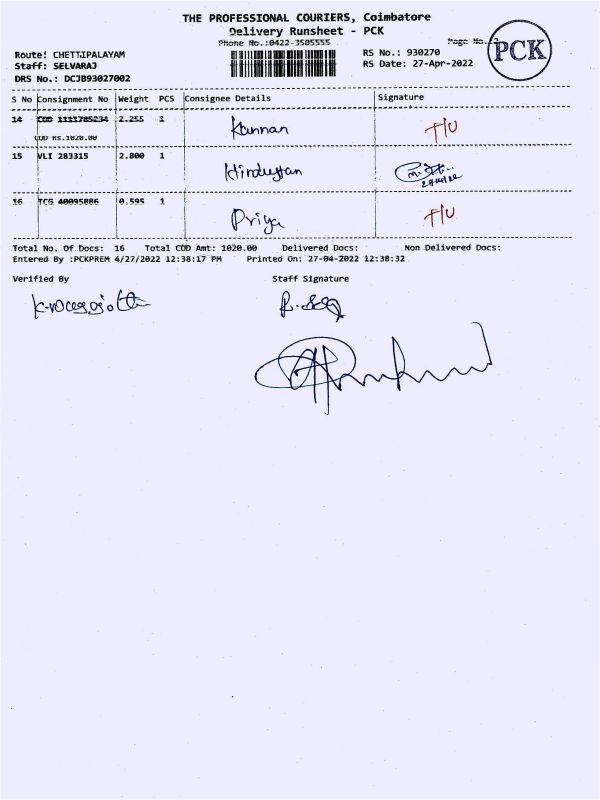 THE PROFESSIONAL COURIERS, Coimbatore
Delivery Runsheet - PCK
Phone No.:0422-3505555
Page No.:
PCK
Route: CHETTIPALAYAM
RS No.: 930270
Staff: SELVARAJ
RS Date: 27-Apr-2022
DRS No.: DCJB93027002
S No Consignment No Weight PCS Consignee Details Signature
14 COD 1111785234 2.255 1 Kannan T/U
COD Rs.1020.00
15 VLI 283315 2.800 1 Hindustan
16 TCG 40095886 0.595 1 Priya T/U
Total No. Of Docs: 16 Total COD Amt: 1020.00 Delivered Docs: Non Delivered Docs:
Entered By :PCKPREM 4/27/2022 12:38:17 PM Printed On: 27-04-2022 12:38:32
Verified By Staff Signature